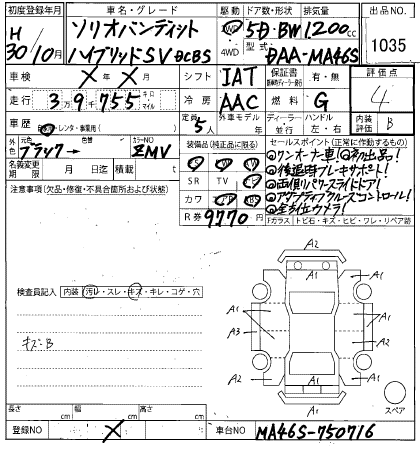 初度登録年月 車名・グレード 駆動 ドア数・形状 排気量 出品NO.
H 30/10月 ソリオバンディット 2WD 5D・BW 1200cc 1035
ハイブリッドSV DCBS 4WD 型式 DAA-MA46S
車検 ×年×月 シフト IAT 保証書 有・無 評価点
走行 39,755 キロ マイル 冷房 AAC 燃料 G 4
車歴 自家用・レンタ・事業用( ) 定員 5人 外車モデル 年 ディーラー 並行 ハンドル 左・右 内装評価 B
外色 元色 ブラック 色替 カラーNO ZMV 装備品(純正品に限る) セールスポイント(正常に作動するもの)
名義変更期限 月 日迄 積載 t ◎ワンオーナー車!◎初出品!
注意事項(欠品・修復・不具合箇所および状態) SR TV ◎後退時ブレーキサポート!
カワ ◎両側パワースライドドア!
R券 9770円 ◎アダプティブクルーズコントロール!
◎全方位カメラ!
Fガラス トビ石・キズ・ヒビ・ワレ・リペア跡
A2
A1
検査員記入 内装(汚レ・スレ・キズ・キレ・コゲ・穴)
A1 A1 A1
キズ・B A3 A1
A1 A2
A2 A1
A1 スペア
長さ cm 幅 cm 高さ cm
登録NO × 車台NO MA46S-750716